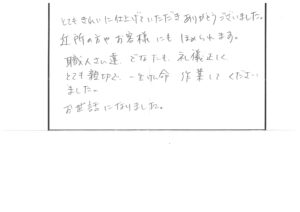 とてもきれいに仕上げていただきありがとうございました。
近所の方やお客様にもほめられます。
職人さん達 どなたも、礼儀正しく
とても親切で、一生けん命 作業してくださいました。
お世話になりました。